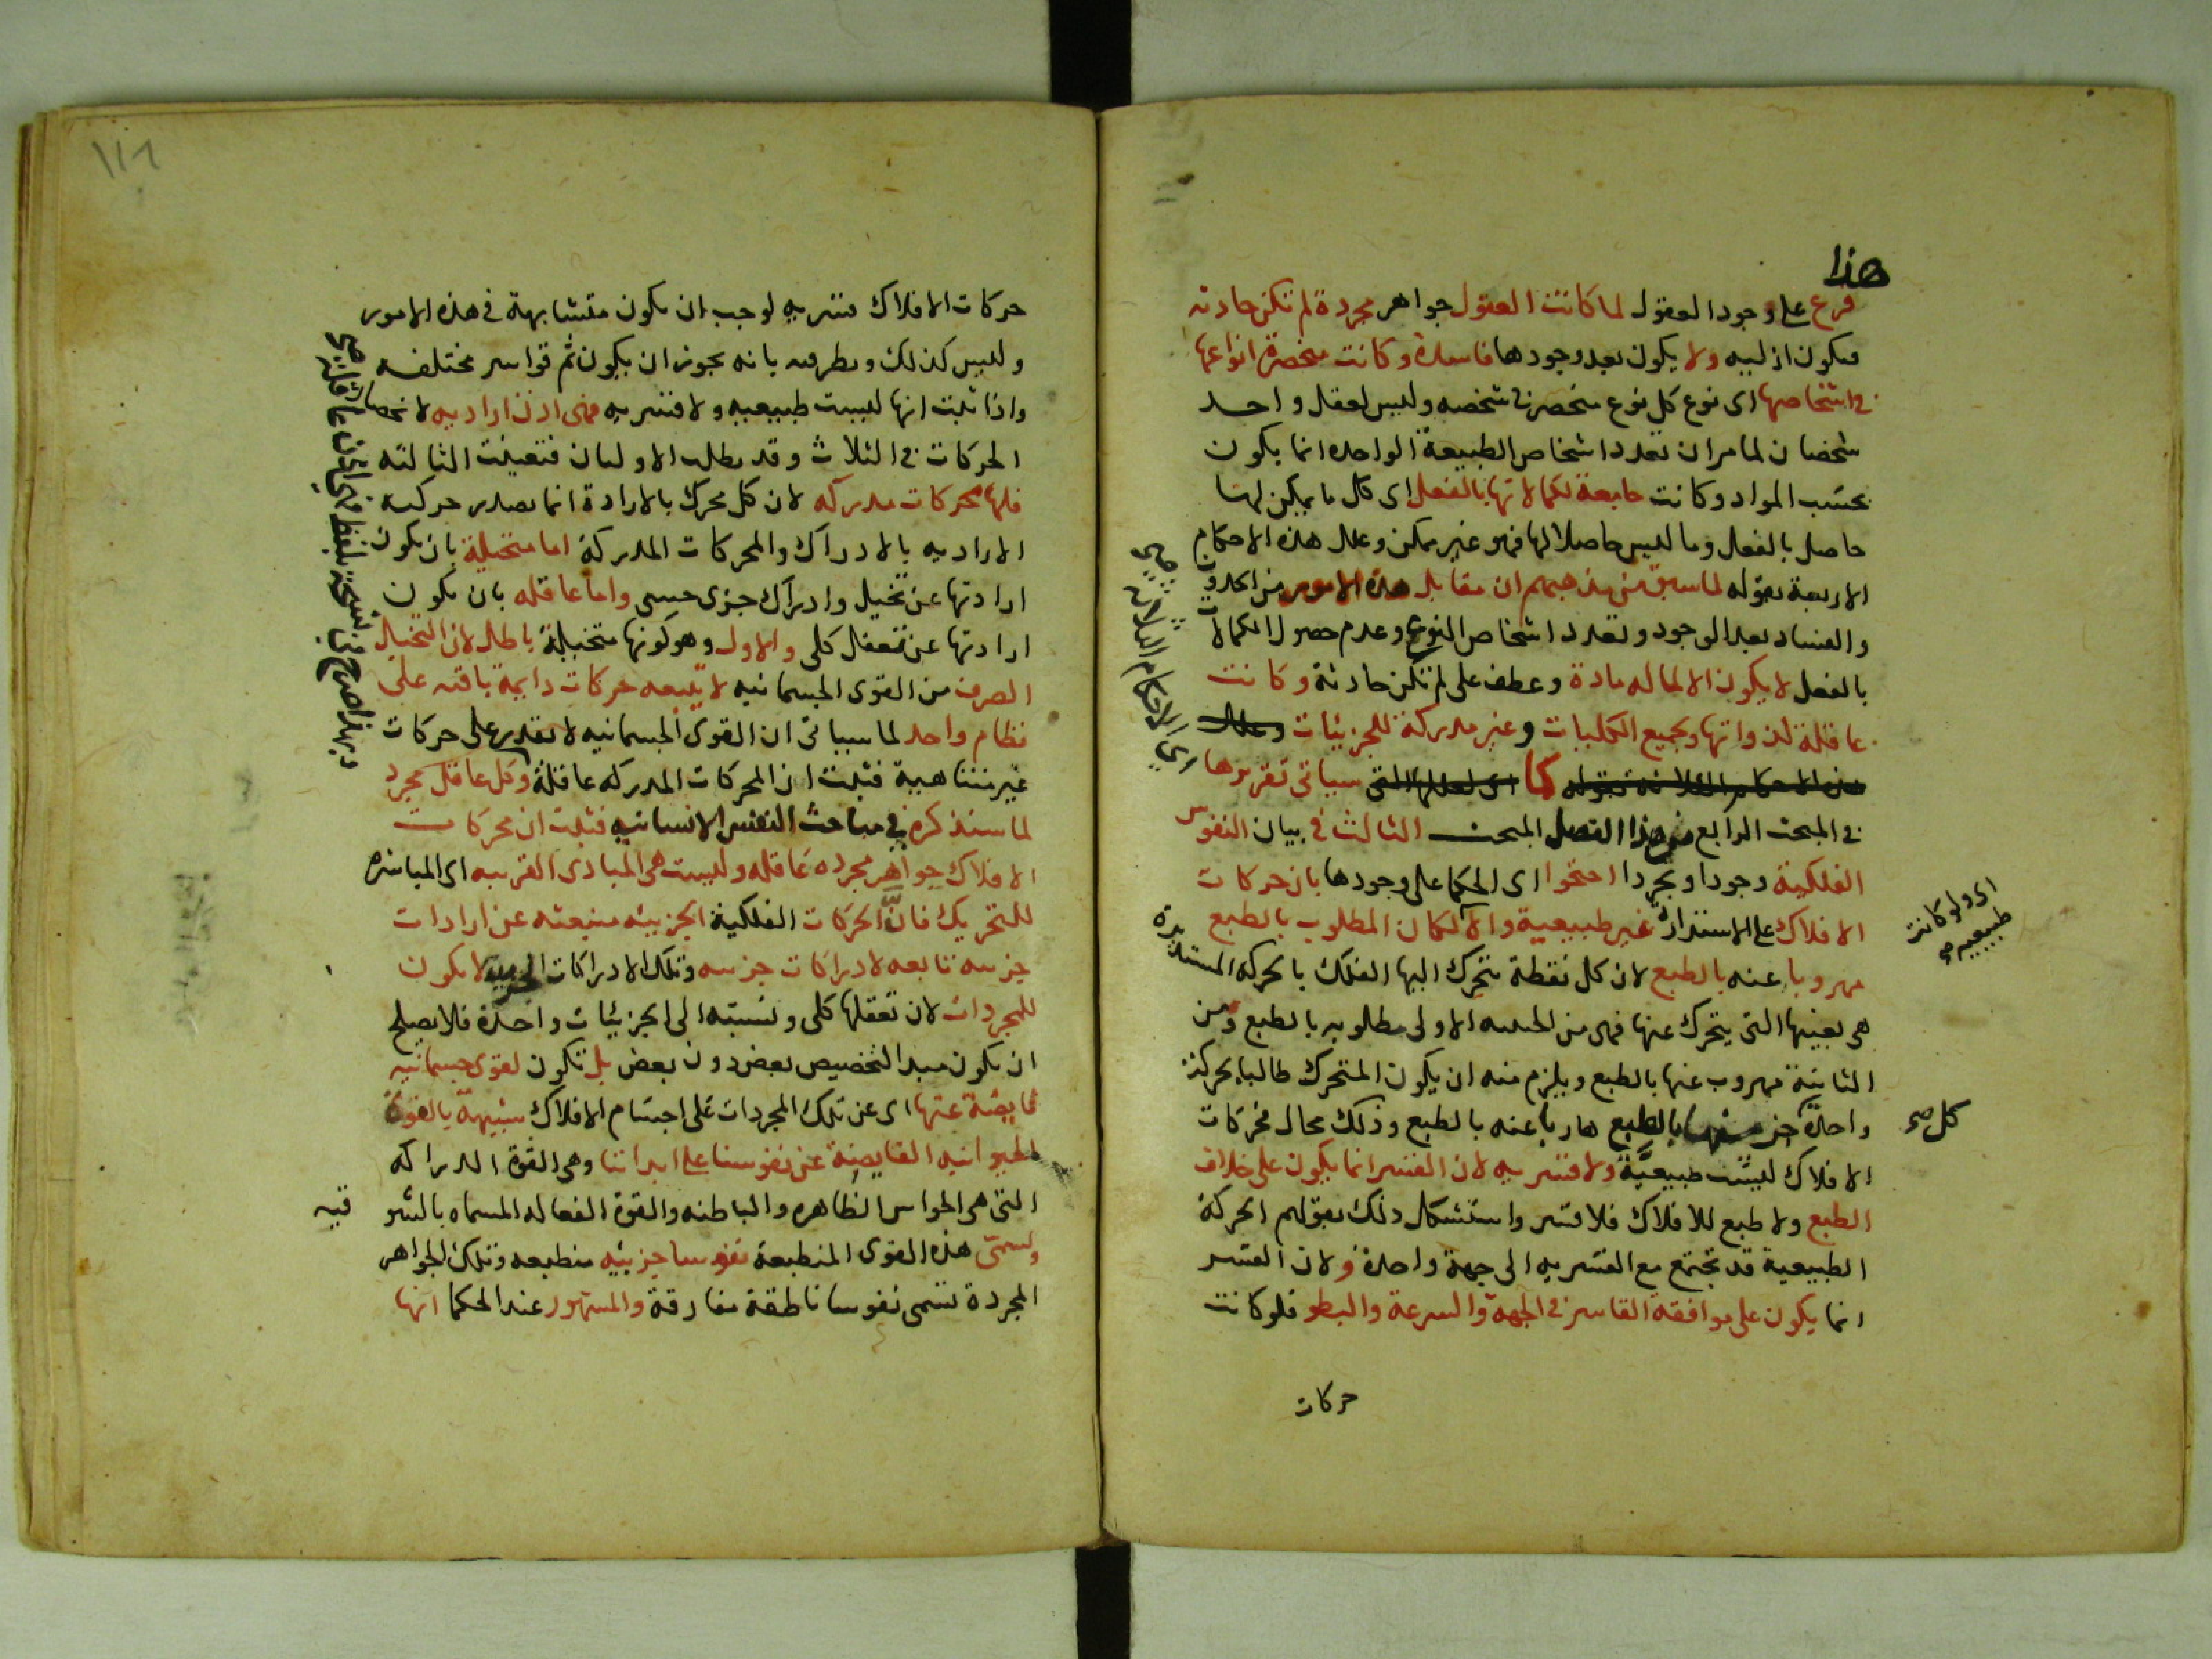 هذا
فرع على وجود العقول لما كانت العقول جواهر مجردة لم تكن حادثه
فيكون ازلييه ولا يكون بعد وجودها فاسدة وكانت منحصرة انواعها
في اشخاصها اى نوع كل نوع منحصر في شخصه وليس لعقل واحد
شخصان لما مر ان تعدد اشخاص الطبيعة الواحده انما يكون
بحسب المواد وكانت جامعة لكمالاتها بالفعل اى كل ما يمكن لها
حاصل بالفعل وما ليس حاصلا لها فهو غير ممكن وعلل هذه الاحكام
الاربعة بقوله لما سبق من مذهبهم ان مقابل هذه الامور من الحدوث
والفساد بعد الوجود وتعدد اشخاص النوع وعدم حصول الكمالات
بالفعل لا يكون الا لما له مادة وعطف على لم تكن حادثة وكانت
عاقلة لذواتها ولجميع الكليات وغير مدركة للجزئيات وعلل
هذه الاحكام الثلاثه بقوله كما التى سياتى تقريرها
في المبحث الرابع من هذا الفصل المبحث الثالث في بيان النفوس
الفلكية وجودا وتجردا احتجوا اى الحكما على وجودها بان حركات
الافلاك على الاستدارة غير طبيعية والا لكان المطلوب بالطبع
مهروبا عنه بالطبع لان كل نقطة تتحرك اليها الفلك بالحركه المستديرة
هى بعينها التى يتحرك عنها فهى من الاولى مطلوبه بالطبع ومن
الثانية مهروب عنها بالطبع ويلزم منه ان يكون المتحرك طالبا بحركة
واحدة بالطبع هاربا عنه بالطبع وذلك محال فحركات
الافلاك ليست طبيعية ولا قسريه لان القسر انما يكون على خلاف
الطبع ولا طبع للافلاك فلا قسر واستشكل ذلك بقولهم الحركة
الطبيعية قد تجتمع مع القسريه الى جهة واحدة ولان القسر
انما يكون على موافقة القاسر في الجهة والسرعة والبطو فلو كانت
حركات
اى الاحكام الثلاثه صح
اى ولو كانت
طبيعيه صح
كل صح
حركات الافلاك قسريه لوجب ان يكون متشابهة في هذه الامور
وليس كذلك ونظر فيه بانه يجوز ان يكون ثم قواسر مختلفه
واذا ثبت انها ليست طبيعييه ولا قسريه فهى اذن اراديه لانحصار
الحركات في الثلاث وقد بطل الاوليان فتعينت الثالثه
فلها محركات مدركه لان كل محرك بالارادة انما يصدر حركته
الاراديه بالادراك والمحركات المدركة اما متخيلة بان يكون
ارادتها عن تخيل وادراك جزى حسى واما عاقله بان يكون
ارادتها عن تعقل كلى والاول وهو كونها متخيلة باطل لان التخيل
الصرف من القوى الجسمانيه لا يتبعه حركات دايمة باقيه على
نظام واحد لما سياتى ان القوى الجسمانيه لا تقدر على حركات
غير متناهية فثبت ان المحركات المدركه عاقلة وكل عاقل مجرد
لما سنذكره في مباحث النفس الانسانيه فثبت ان محركات
الافلاك جواهر مجرده عاقله وليست هى المبادى القريبه اى المباشره
للتحريك فان الحركات الفلكية الجزييه منبعثه عن ارادات
جزييه تابعه لادراكات جزييه وتلك الادراكات الجزييه لا يكون
للمجردات لان تعقلها كلى ونسبته الى الجزئيات واحدة فلا يصلح
ان يكون مبدا لتخصيص بعض دون بعض بل تكون لقوى جسمانيه
فايضة عنها اى عن تلك المجردات على اجسام الافلاك شبيهة بالقوة
الحيوانيه الفايضة عن نفوسنا على ابداننا وهى القوة الدراكه
التى هى الحواس الظاهره والباطنه والقوة الفعاله المسماه بالشوقيه
وتسمى هذه القوى المنطبعة نفوسا جزييه منطبعه وتلك الجواهر
المجردة تسمى نفوسا ناطقة مفارقة والمشهور عند الحكما انها